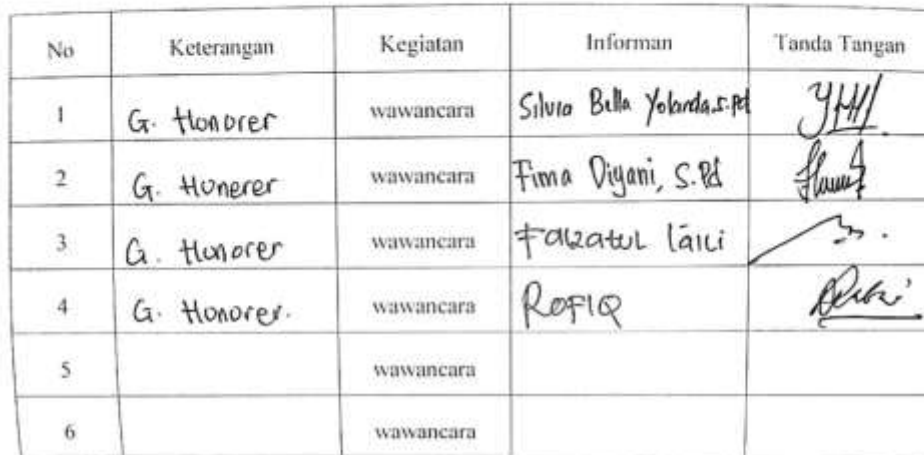 No Keterangan Kegiatan Informan Tanda Tangan
1 G. Honorer wawancara Silvia Bella Yolanda, S.Pd
2 G. Honerer wawancara Fima Diyani, S.Pd
3 G. Honorer wawancara Faizatul laili
4 G. Honorer. wawancara ROFIQ
5 wawancara
6 wawancara